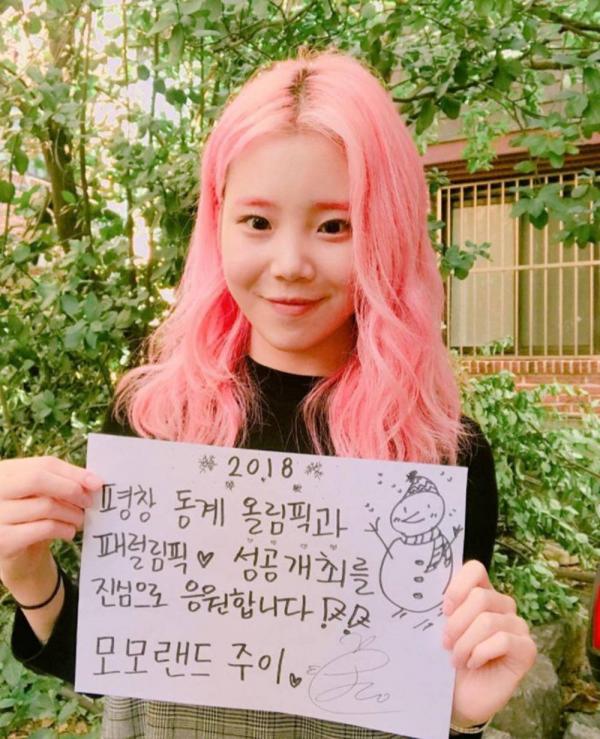 2018
평창 동계 올림픽과
패럴림픽♥ 성공개최를
진심으로 응원합니다!
모모랜드 주이